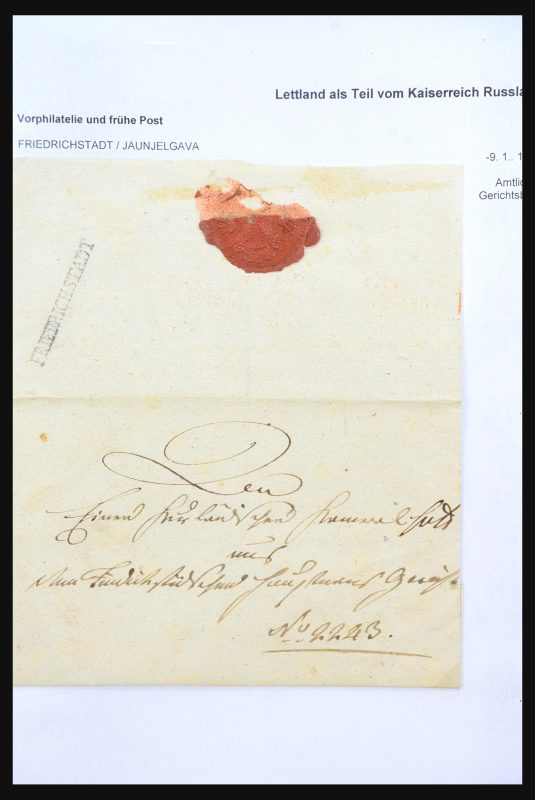 Lettland als Teil vom Kaiserreich Russla
Vorphilatelie und frühe Post
FRIEDRICHSTADT / JAUNJELGAVA
-9. 1.. 1
Amtlic
Gerichtsb
FRIEDRICHSTADT
Den
Einen Kurländischen Kameralhoff
aus
dem Friedrichstädtschen Hauptmanns Gericht
No 2223.